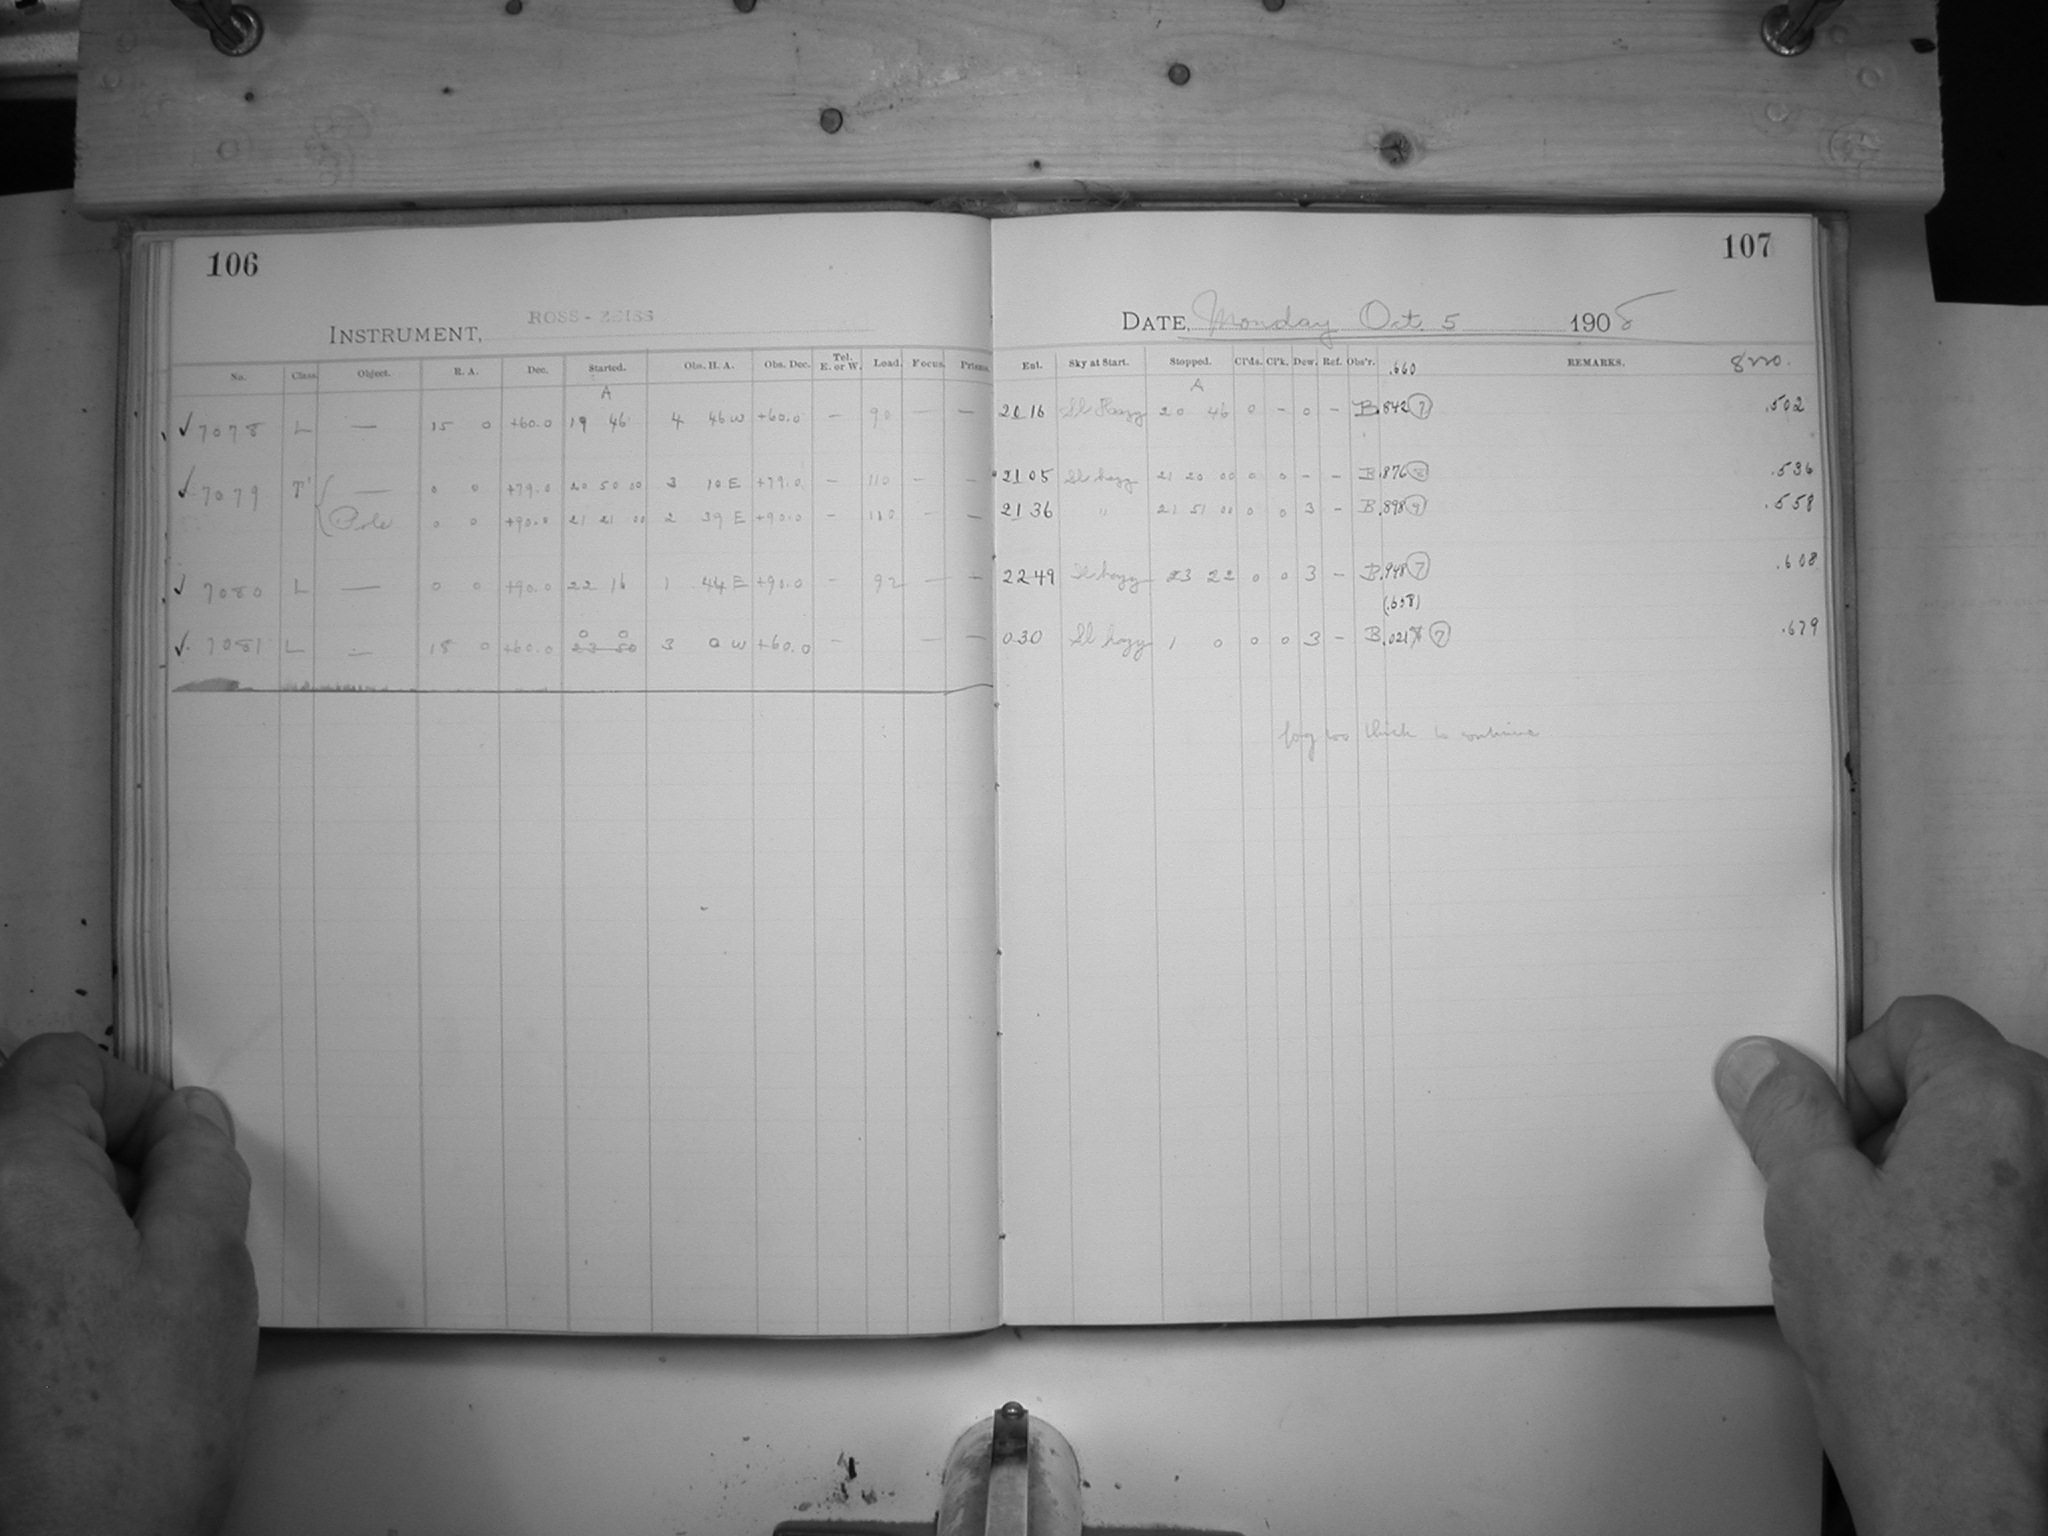 106
ROSS-ZEISS
INSTRUMENT,
No. Class. Object. R. A. Dec. Started. Obs. H. A. Obs. Dec. Tel. E. or W. Load. Focus. Prisms.
A
✓ 7078 L — 15 0 +60.0 19 46 4 46 W +60.0 — 90 — —
✓ 7079 T' { — 0 0 +79.0 20 50 00 3 10 E +79.0 — 110 — —
Pole 0 0 +90.0 21 21 00 2 39 E +90.0 — 110 — —
✓ 7080 L — 0 0 +90.0 22 16 1 44 E +90.0 — 92 — —
0 0
✓ 7081 L — 18 0 +60.0 23 50 3 0 W +60.0 — — —
107
DATE, Monday Oct. 5 1908
Ext. Sky at Start. Stopped. Cl'ds. Cl'k. Dew. Ref. Obs'r. .660 REMARKS. 8 mo.
A
20 16 Sl Hazy 20 46 0 - 0 - B .842 (7) .502
21 05 Sl hazy 21 20 00 0 0 - - B .876 .536
21 36 " 21 51 00 0 0 3 - B .898 (9) .558
22 49 Sl hazy 23 22 0 0 3 - B .948 (7) .608
(.658)
0 30 Sl hazy 1 0 0 0 3 - B .021 (7) .679
fog too thick to continue